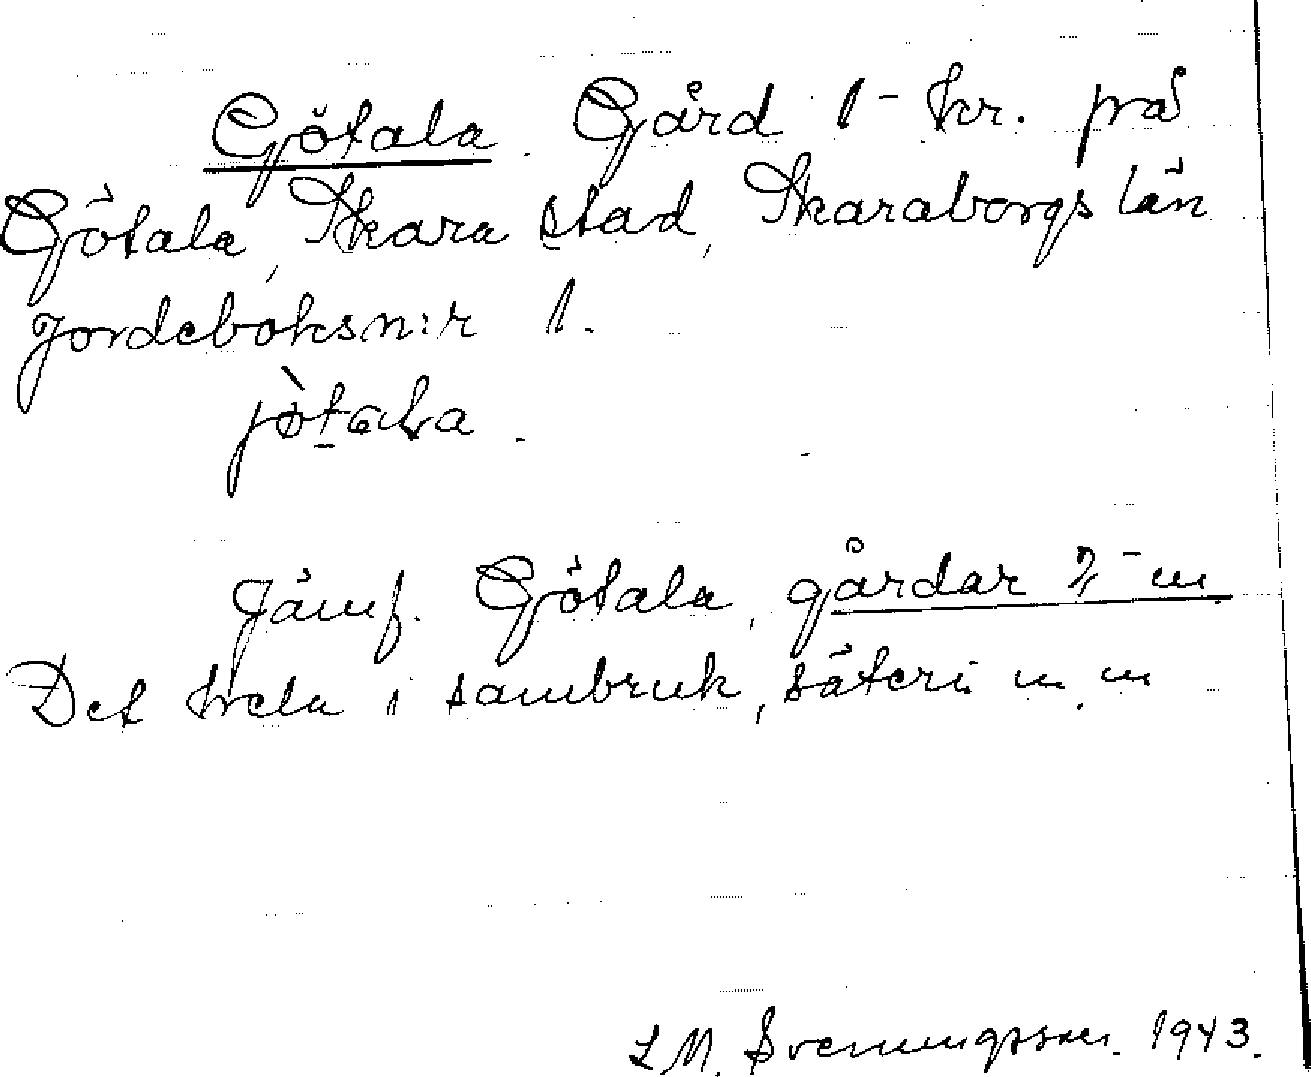 Götala. Gård 1- kr. på
Götala, Skara stad, Skaraborgs län
Jordeboksn:r 1.
jòtala.
Jämf. Götala, gårdar 2, - m
Det hela i sambruk, säteri m. m
L M. Svenungsson. 1943.